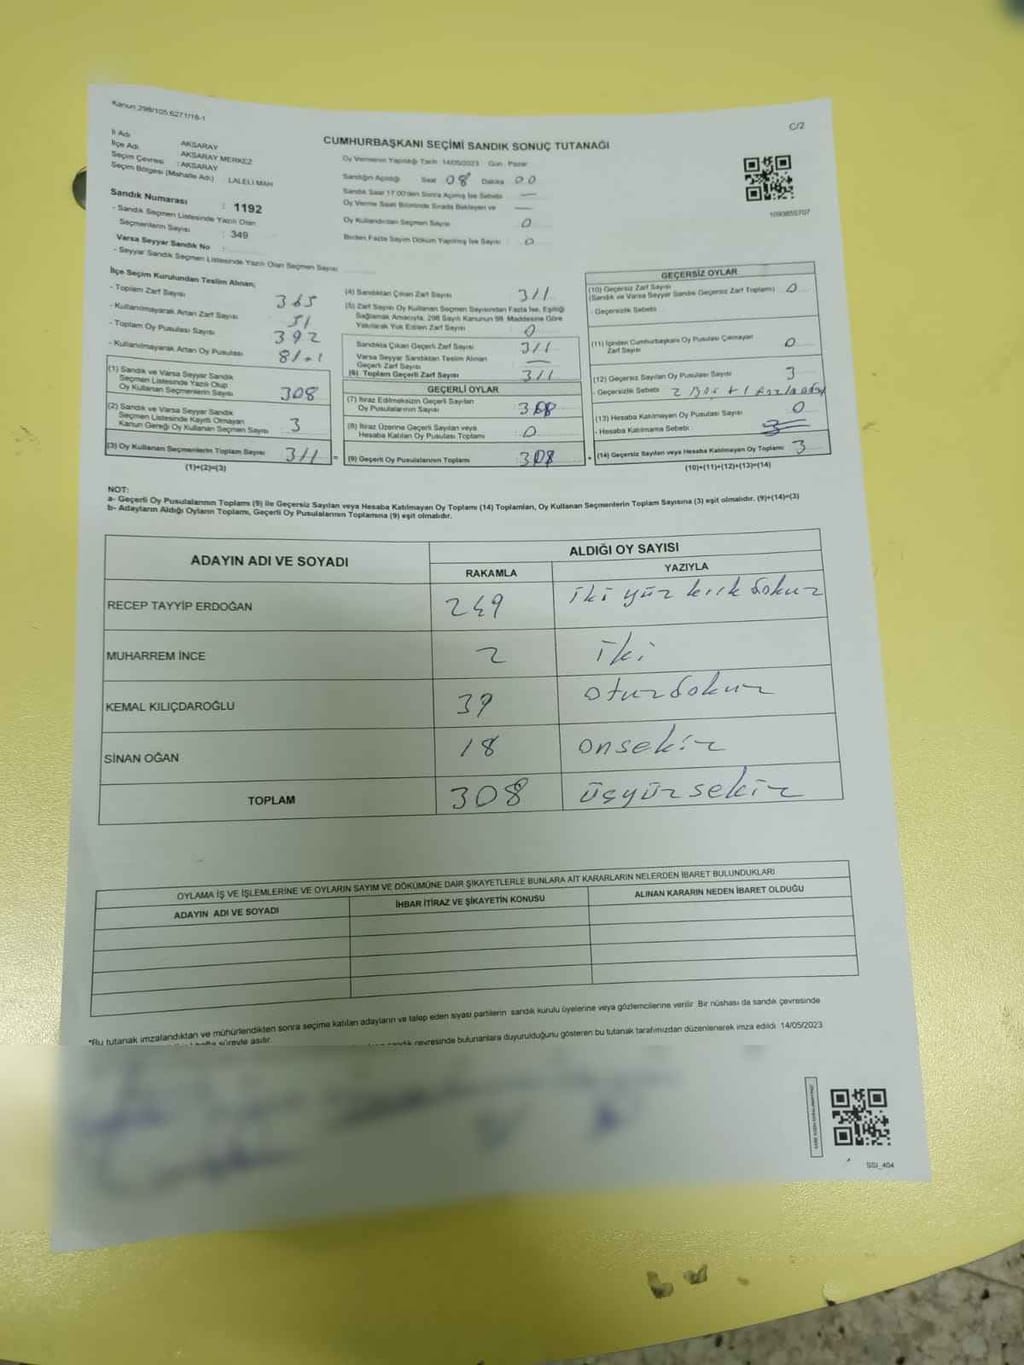 Kanun 298/105.6271/16-1
C/2
İl Adı AKSARAY
İlçe Adı AKSARAY MERKEZ
Seçim Çevresi : AKSARAY
Seçim Bölgesi (Mahalle Adı) LALELİ MAH
CUMHURBAŞKANI SEÇİMİ SANDIK SONUÇ TUTANAĞI
Oy Vermenin Yapıldığı Tarih 14/05/2023 Gün: Pazar
Sandığın Açıldığı Saat 08 Dakika 00
Sandık Saat 17.00'den Sonra Açılmış İse Sebebi —
Oy Verme Saati Bitiminde Sırada Bekleyen ve —
Oy Kullandırılan Seçmen Sayısı 0
Birden Fazla Sayım Döküm Yapılmış İse Sayısı 0
Sandık Numarası : 1192
- Sandık Seçmen Listesinde Yazılı Olan
Seçmenlerin Sayısı : 349
Varsa Seyyar Sandık No
- Seyyar Sandık Seçmen Listesinde Yazılı Olan Seçmen Sayısı
İlçe Seçim Kurulundan Teslim Alınan;
- Toplam Zarf Sayısı 365
- Kullanılmayarak Artan Zarf Sayısı 51
- Toplam Oy Pusulası Sayısı 392
- Kullanılmayarak Artan Oy Pusulası 81+1
(1) Sandık ve Varsa Seyyar Sandık
Seçmen Listesinde Yazılı Olup
Oy Kullanan Seçmenlerin Sayısı 308
(2) Sandık ve Varsa Seyyar Sandık
Seçmen Listesinde Kayıtlı Olmayan
Kanun Gereği Oy Kullanan Seçmen Sayısı 3
(3) Oy Kullanan Seçmenlerin Toplam Sayısı 311 =
(1)+(2)=(3)
(4) Sandıktan Çıkan Zarf Sayısı 311
(5) Zarf Sayısı Oy Kullanan Seçmen Sayısından Fazla İse, Eşitliği
Sağlamak Amacıyla, 298 Sayılı Kanunun 98. Maddesine Göre
Yakılarak Yok Edilen Zarf Sayısı 0
Sandıkta Çıkan Geçerli Zarf Sayısı 311
Varsa Seyyar Sandıktan Teslim Alınan
Geçerli Zarf Sayısı —
(6) Toplam Geçerli Zarf Sayısı 311
GEÇERLİ OYLAR
(7) İtiraz Edilmeksizin Geçerli Sayılan
Oy Pusulalarının Sayısı 308
(8) İtiraz Üzerine Geçerli Sayılan veya
Hesaba Katılan Oy Pusulası Toplamı 0
(9) Geçerli Oy Pusulalarının Toplamı 308 +
GEÇERSİZ OYLAR
(10) Geçersiz Zarf Sayısı
(Sandık ve Varsa Seyyar Sandık Geçersiz Zarf Toplamı) 0
- Geçersizlik Sebebi
(11) İçinden Cumhurbaşkanı Oy Pusulası Çıkmayan
Zarf Sayısı 0
(12) Geçersiz Sayılan Oy Pusulası Sayısı 3
- Geçersizlik Sebebi 2 Boş + 1
(13) Hesaba Katılmayan Oy Pusulası Sayısı 0
- Hesaba Katılmama Sebebi
(14) Geçersiz Sayılan veya Hesaba Katılmayan Oy Toplamı 3
(10)+(11)+(12)+(13)=(14)
NOT:
a- Geçerli Oy Pusulalarının Toplamı (9) ile Geçersiz Sayılan veya Hesaba Katılmayan Oy Toplamı (14) Toplamları, Oy Kullanan Seçmenlerin Toplam Sayısına (3) eşit olmalıdır. (9)+(14)=(3)
b- Adayların Aldığı Oyların Toplamı, Geçerli Oy Pusulalarının Toplamına (9) eşit olmalıdır.
ADAYIN ADI VE SOYADI ALDIĞI OY SAYISI
RAKAMLA YAZIYLA
RECEP TAYYİP ERDOĞAN 249 iki yüz kırk dokuz
MUHARREM İNCE 2 iki
KEMAL KILIÇDAROĞLU 39 otuzdokuz
SİNAN OĞAN 18 onsekiz
TOPLAM 308 üçyüz sekiz
OYLAMA İŞ VE İŞLEMLERİNE VE OYLARIN SAYIM VE DÖKÜMÜNE DAİR ŞİKAYETLERLE BUNLARA AİT KARARLARIN NELERDEN İBARET BULUNDUKLARI
ADAYIN ADI VE SOYADI İHBAR İTİRAZ VE ŞİKAYETİN KONUSU ALINAN KARARIN NEDEN İBARET OLDUĞU
*Bu tutanak imzalandıktan ve mühürlendikten sonra seçime katılan adayların ve talep eden siyasi partilerin sandık kurulu üyelerine veya gözlemcilerine verilir. Bir nüshası da sandık çevresinde
süreyle asılır.
sandık çevresinde bulunanlara duyurulduğunu gösteren bu tutanak tarafımızdan düzenlenerek imza edildi 14/05/2023
SSI_404